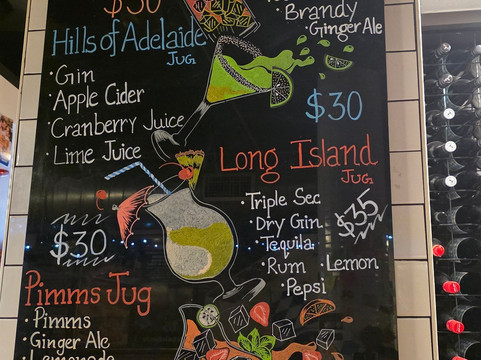 $30
Brandy
Ginger Ale
Hills of Adelaide
JUG
· Gin
· Apple Cider
· Cranberry Juice
· Lime Juice
$30
Long Island
JUG
· Triple Sec
· Dry Gin
· Tequila
· Rum · Lemon
· Pepsi
$35
$30
Pimms Jug
· Pimms
· Ginger Ale
· Lemonade